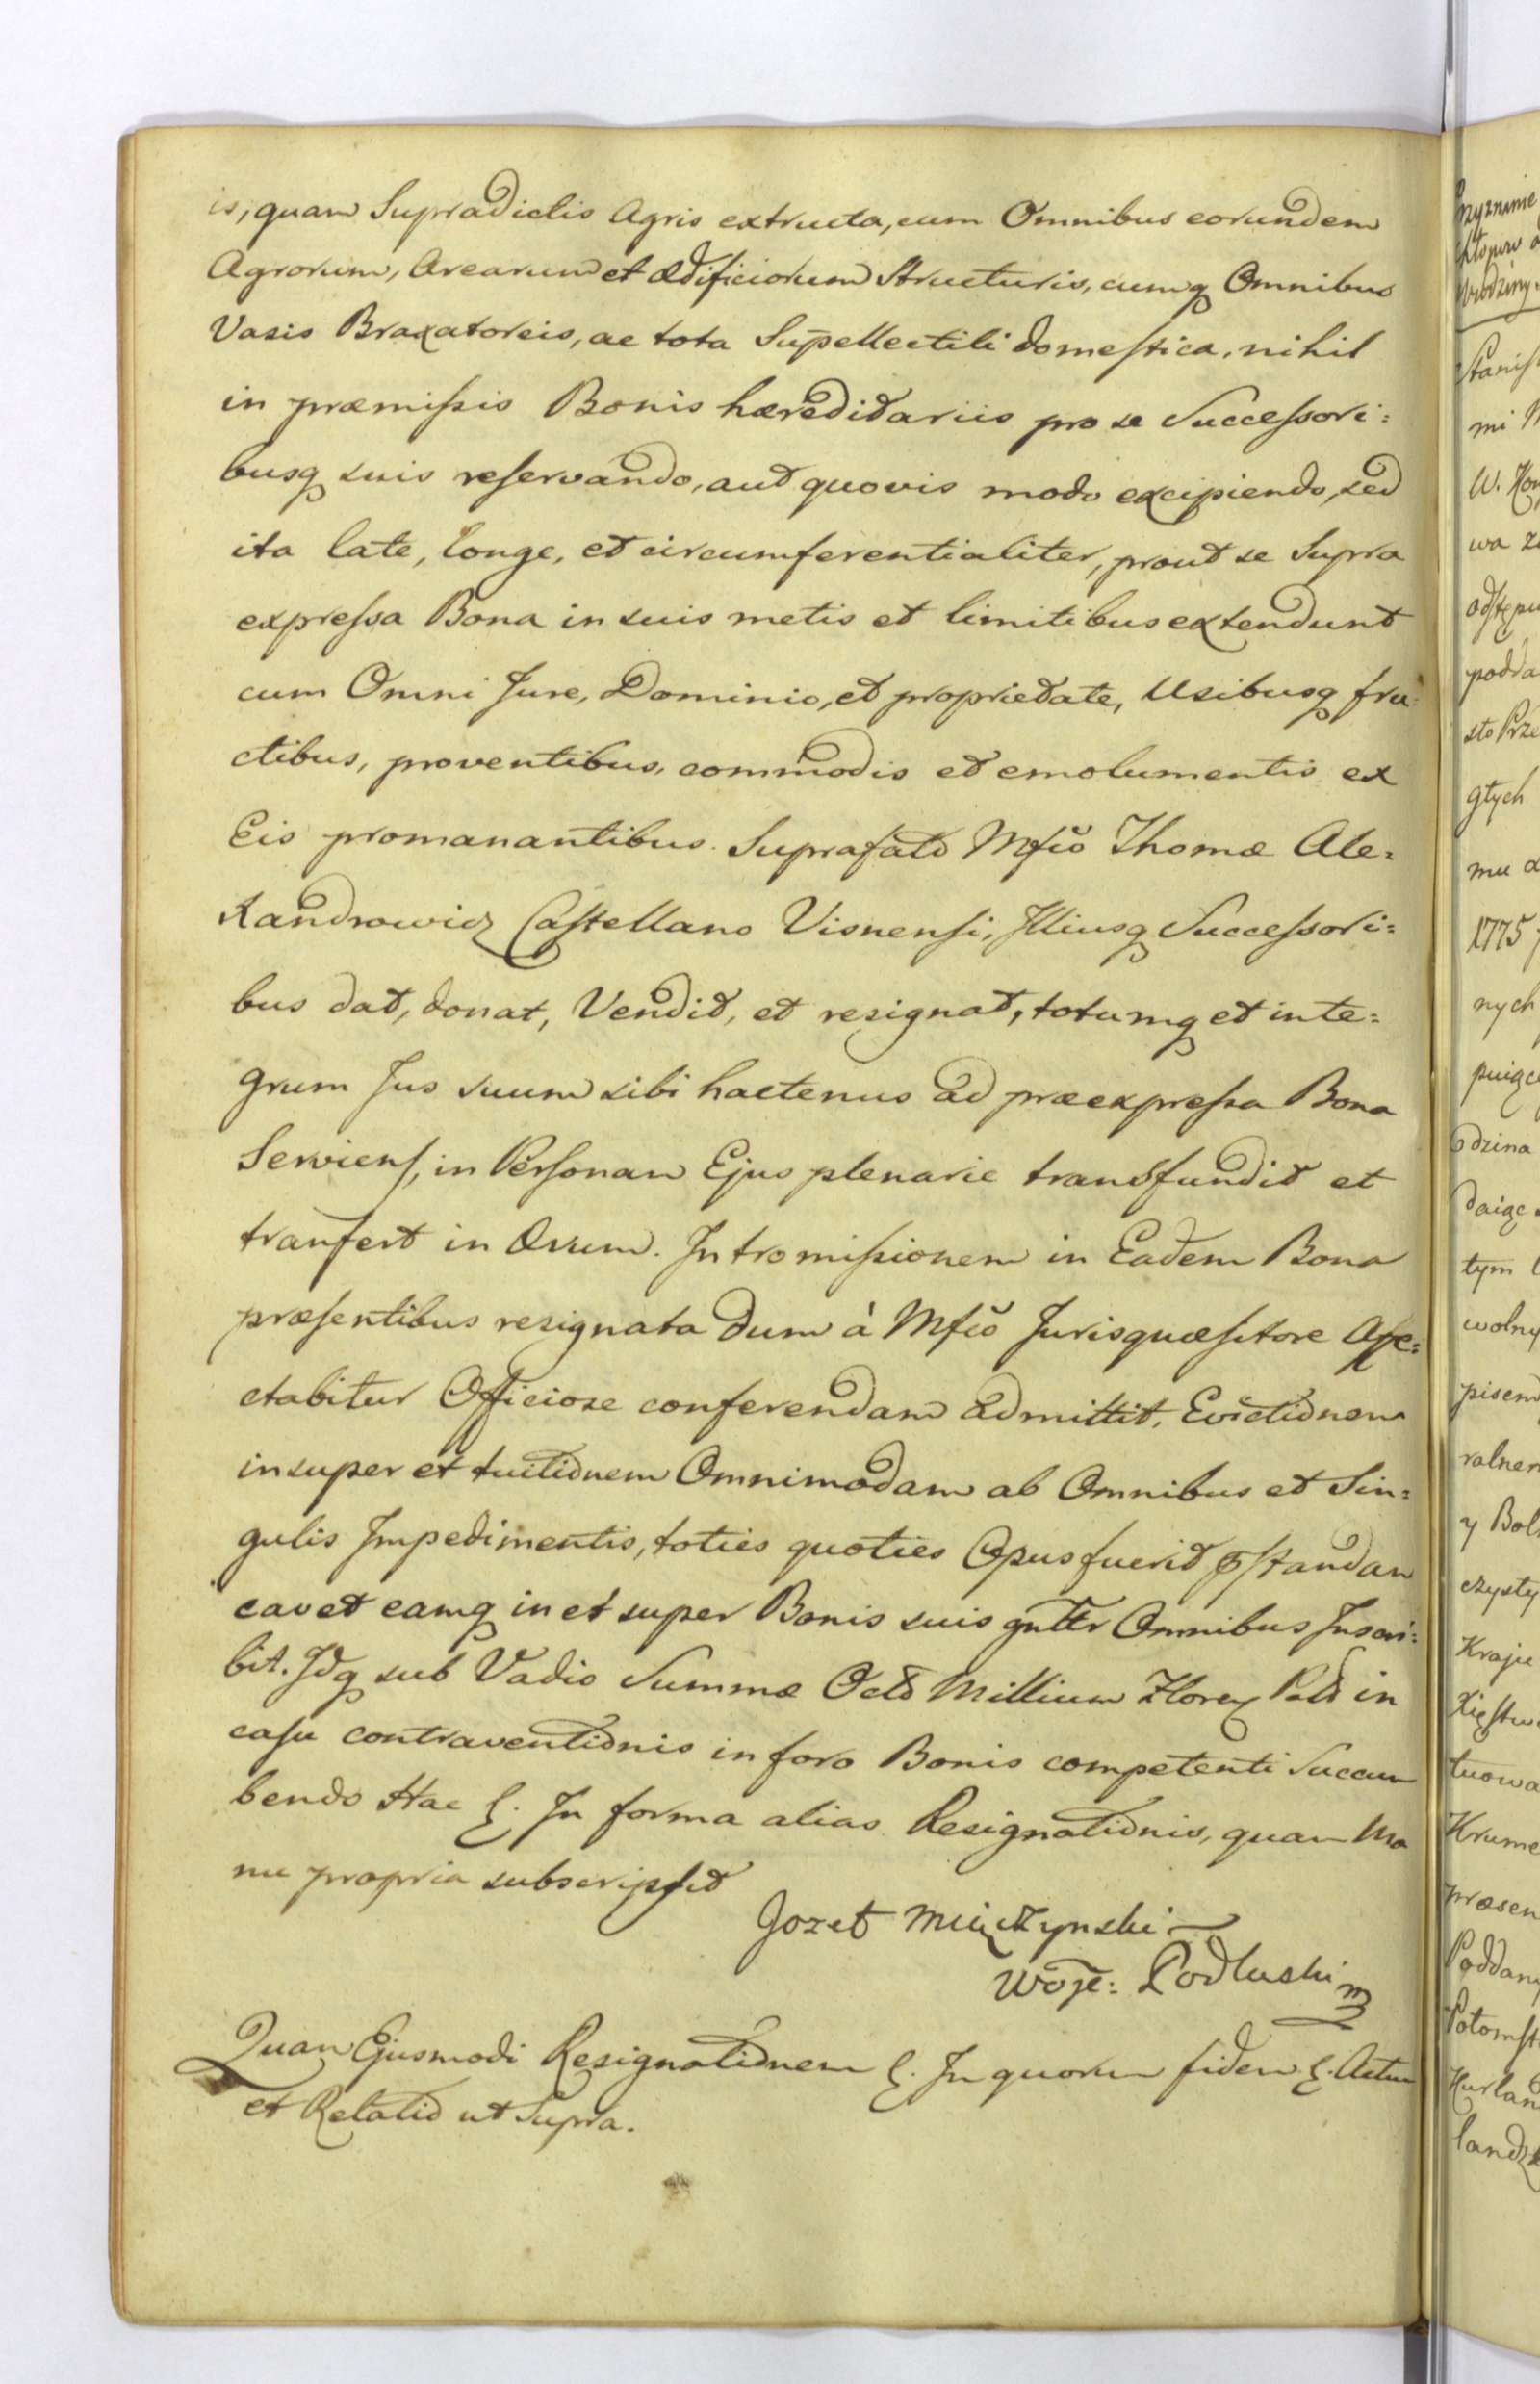 is, quam Supradictis Agris extructa, cum Omnibus eorundem
Agrorum, Arearum et Ædificiorum Structuris, cumq Omnibus
Vasis Braxatoreis, ac tota Supellectili domestica, nihil
in præmissis Bonis hæreditariis pro se Successori:
busq suis reservando, aut quovis modo excipiendo, sed
ita late, longe, et circumferentialiter, prout se Supra
expressa Bona in suis metis et limitibus extendunt
cum Omni Jure, Dominio, et proprietate, Usibusq fru:
ctibus, proventibus, commodis et emolumentis ex
Eis promanantibus. Suprafato Mfco Thomæ Ale:
xandrowicz Castellano Visnensi, Illiusq Successori:
bus dat, donat, Vendit, et resignat, totumq et inte:
grum Jus suum sibi hactenus ad præexpressa Bona
Serviens, in Personam Ejus plenarie transfundit et
transfert in Ævum. Intromissionem in Eadem Bona
præsentibus resignata dum à Mfco Jurisquæsitore Affe:
ctabitur Officiose conferendam admittit, Evictionem
insuper et tuitionem Omnimodam ab Omnibus et Sin:
gulis Impedimentis, toties quoties Opus fuerit pstandam
cavet eamq in et super Bonis suis gnttr Omnibus Inscri:
bit. Idq sub Vadio Summæ Octo Millium Floren Pold in
casu contraventionis in foro Bonis competenti Succum
bendo Hac &. In forma alias Resignationis, quam Ma
nu propria subscripsit
Jozef Miączynski
Woje: Podluski
Quam Ejusmodi Resignationem &. In quorum fidem &. Actum
et Relatio ut Supra.
Stanis
mi
W.
wa
podda
sto Prze
głych
mu
1775
nych
tym
wolny
pisem
y
Kraju
præsen
Poddany